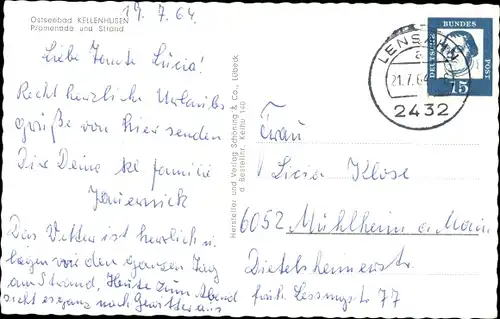 19.7.64.
Ostseebad KELLENHUSEN
Promenade und Strand
Liebe Tante Lucia!
Recht herzliche Urlaubs
grüße von hier senden
Dir Deine
Familie
Das Wetter ist herrlich u.
liegen wir den ganzen Tag
am Strand, Heute zum Abend
sieht es ganz nach Gewitter aus
Hersteller und Verlag Schöning & Co., Lübeck
Bestellnr. Kelhu 140
LENSAHN
a
21.7.64
2432
DEUTSCHE BUNDES POST
15
Frau
Licia Klose
6052 Mühlheim a. Main
Dietesheimerstr.
früh. Lessingstr 77